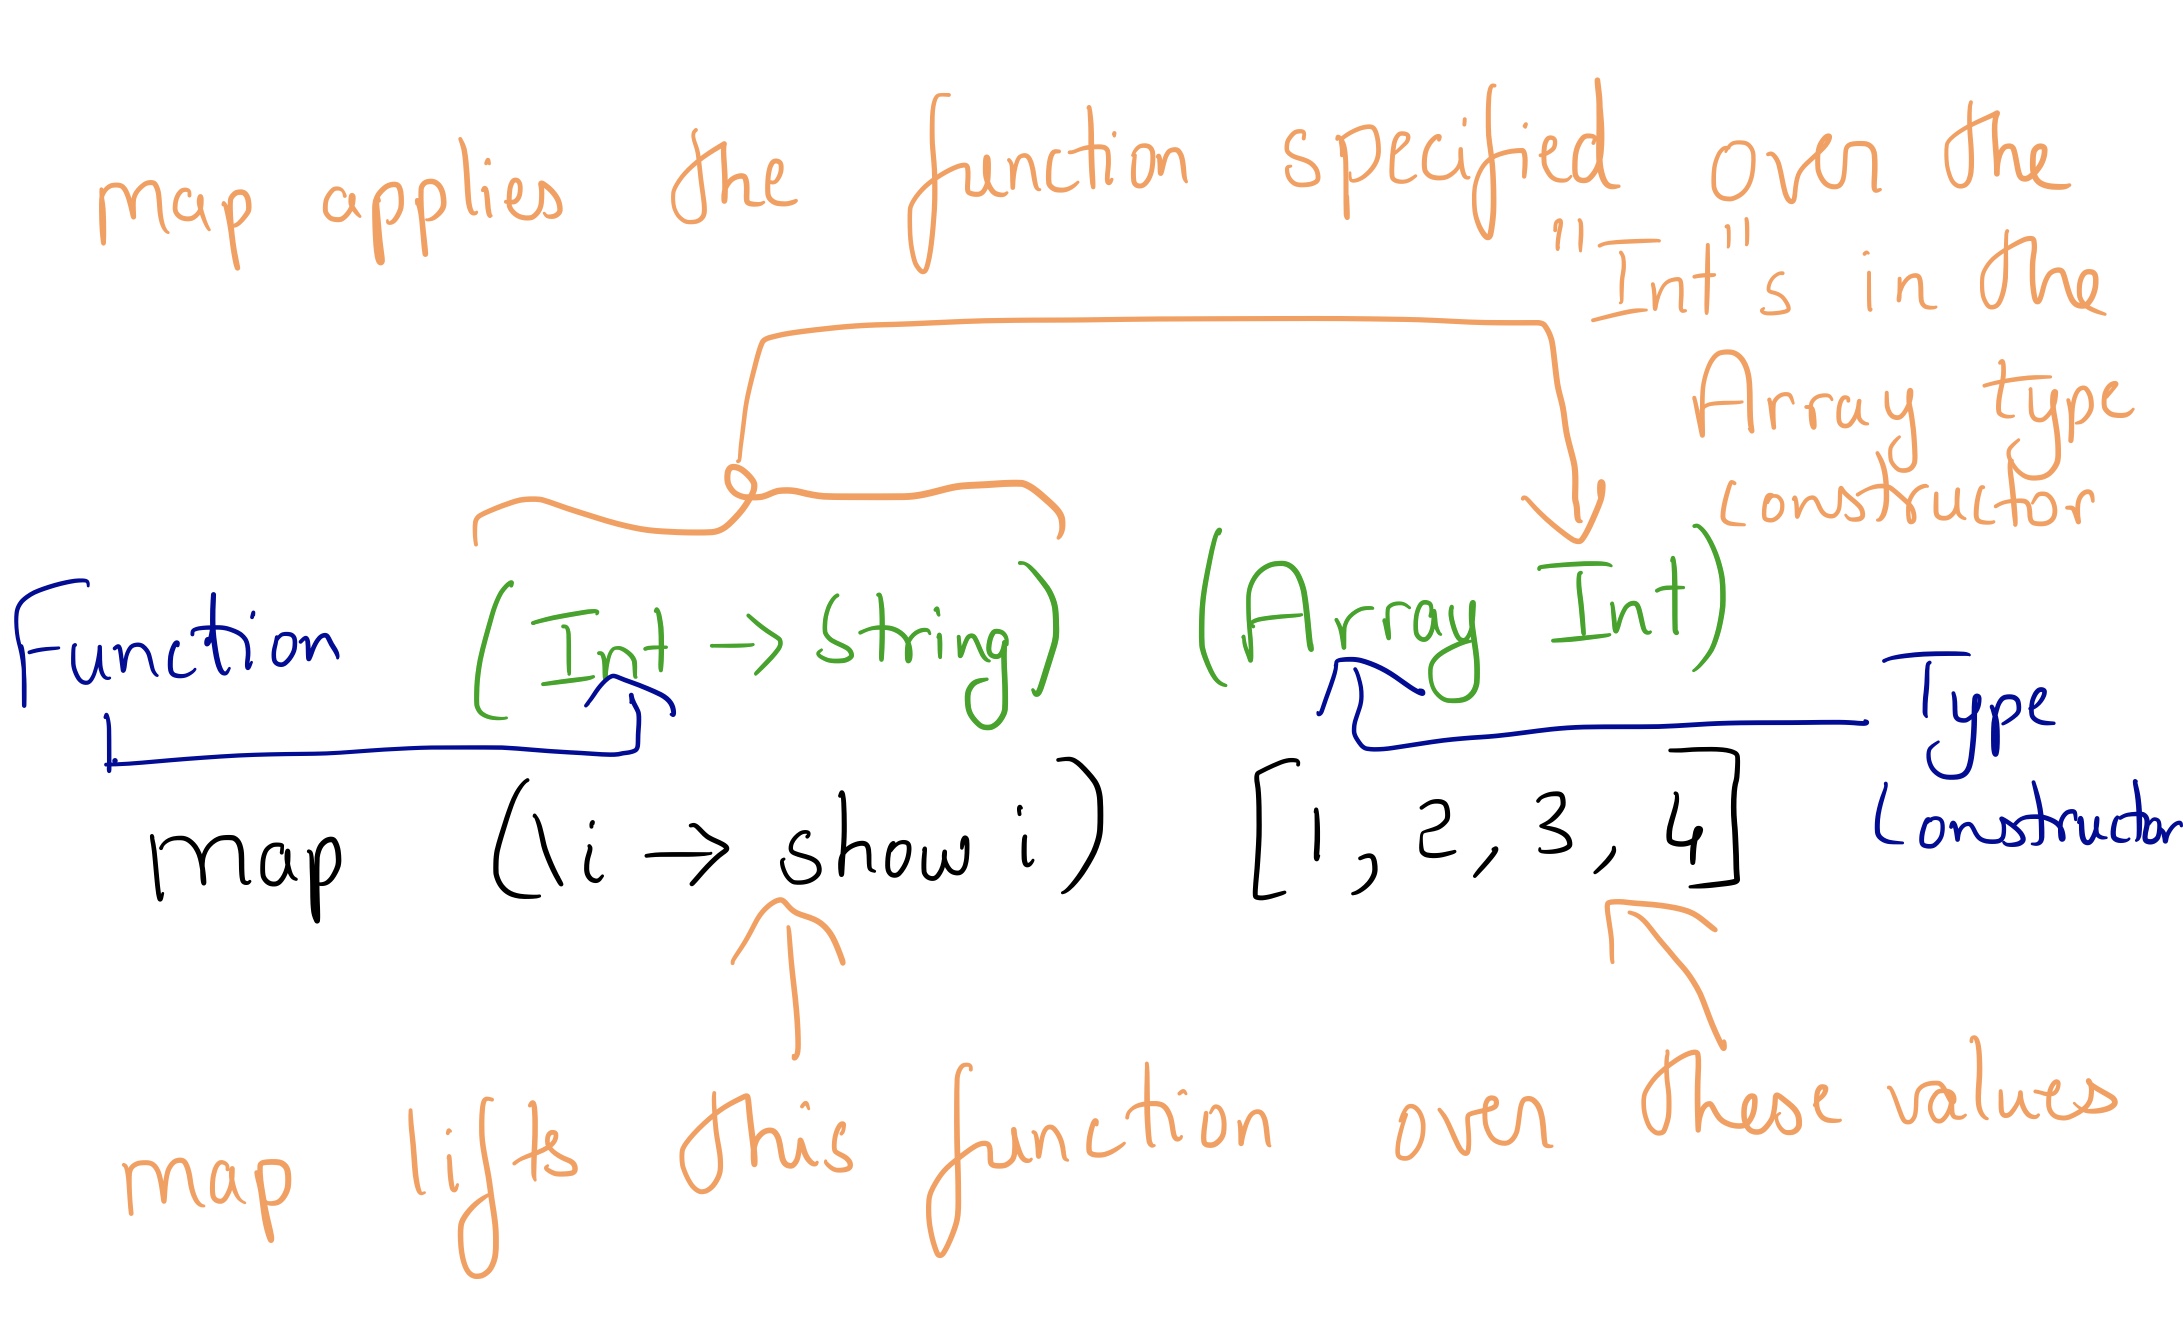 map applies the function specified over the
"Int"s in the
Array type
constructor
Function (Int → String) (Array Int)
Type
Constructor
map (\i → show i) [1, 2, 3, 4]
map lifts this function over these values